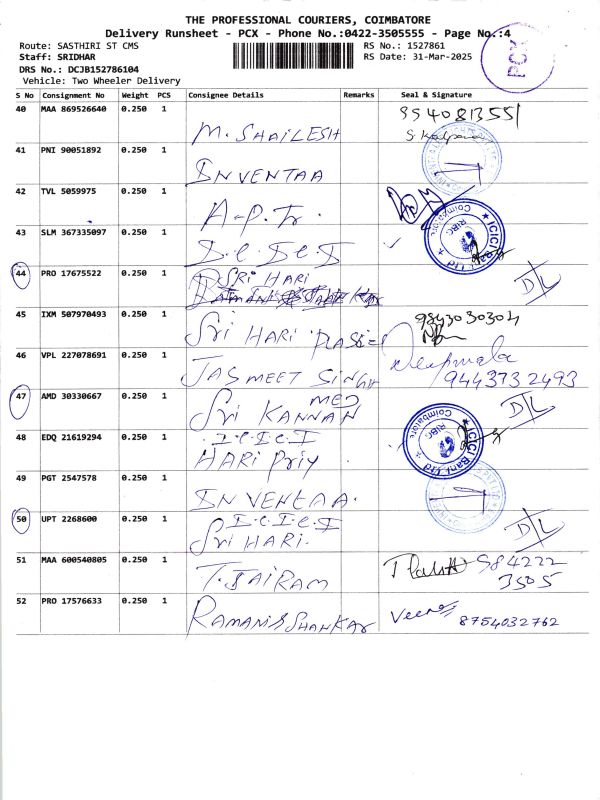 THE PROFESSIONAL COURIERS, COIMBATORE
Delivery Runsheet - PCX - Phone No.:0422-3505555 - Page No.:4
Route: SASTHIRI ST CMS
RS No.: 1527861
Staff: SRIDHAR
RS Date: 31-Mar-2025
DRS No.: DCJB152786104
Vehicle: Two Wheeler Delivery
PCX
S No Consignment No Weight PCS Consignee Details Remarks Seal & Signature
40 MAA 869526640 0.250 1 M. SHAILESH
41 PNI 90051892 0.250 1 INVENTAA
42 TVL 5059975 0.250 1
43 SLM 367335097 0.250 1 I.C.I.C.I ICICI Bank Ltd Coimbatore RIBC
44 PRO 17675522 0.250 1 SRI HARI D/L
45 IXM 507970493 0.250 1 Sri HARI 9843030304
46 VPL 227078691 0.250 1 JASMEET SINGH Deepmala 9443732493
47 AMD 30330667 0.250 1 Sri KANNAN MED D/L
48 EDQ 21619294 0.250 1 I.C.I.C.I HARI Priy ICICI Bank Ltd Coimbatore RIBC
49 PGT 2547578 0.250 1 INVENTAA.
50 UPT 2268600 0.250 1 I.C.I.C.I Sri HARI. D/L
51 MAA 600540805 0.250 1 T. SAIRAM 984222 3505
52 PRO 17576633 0.250 1 RAMANI SHANKAR 8754032762